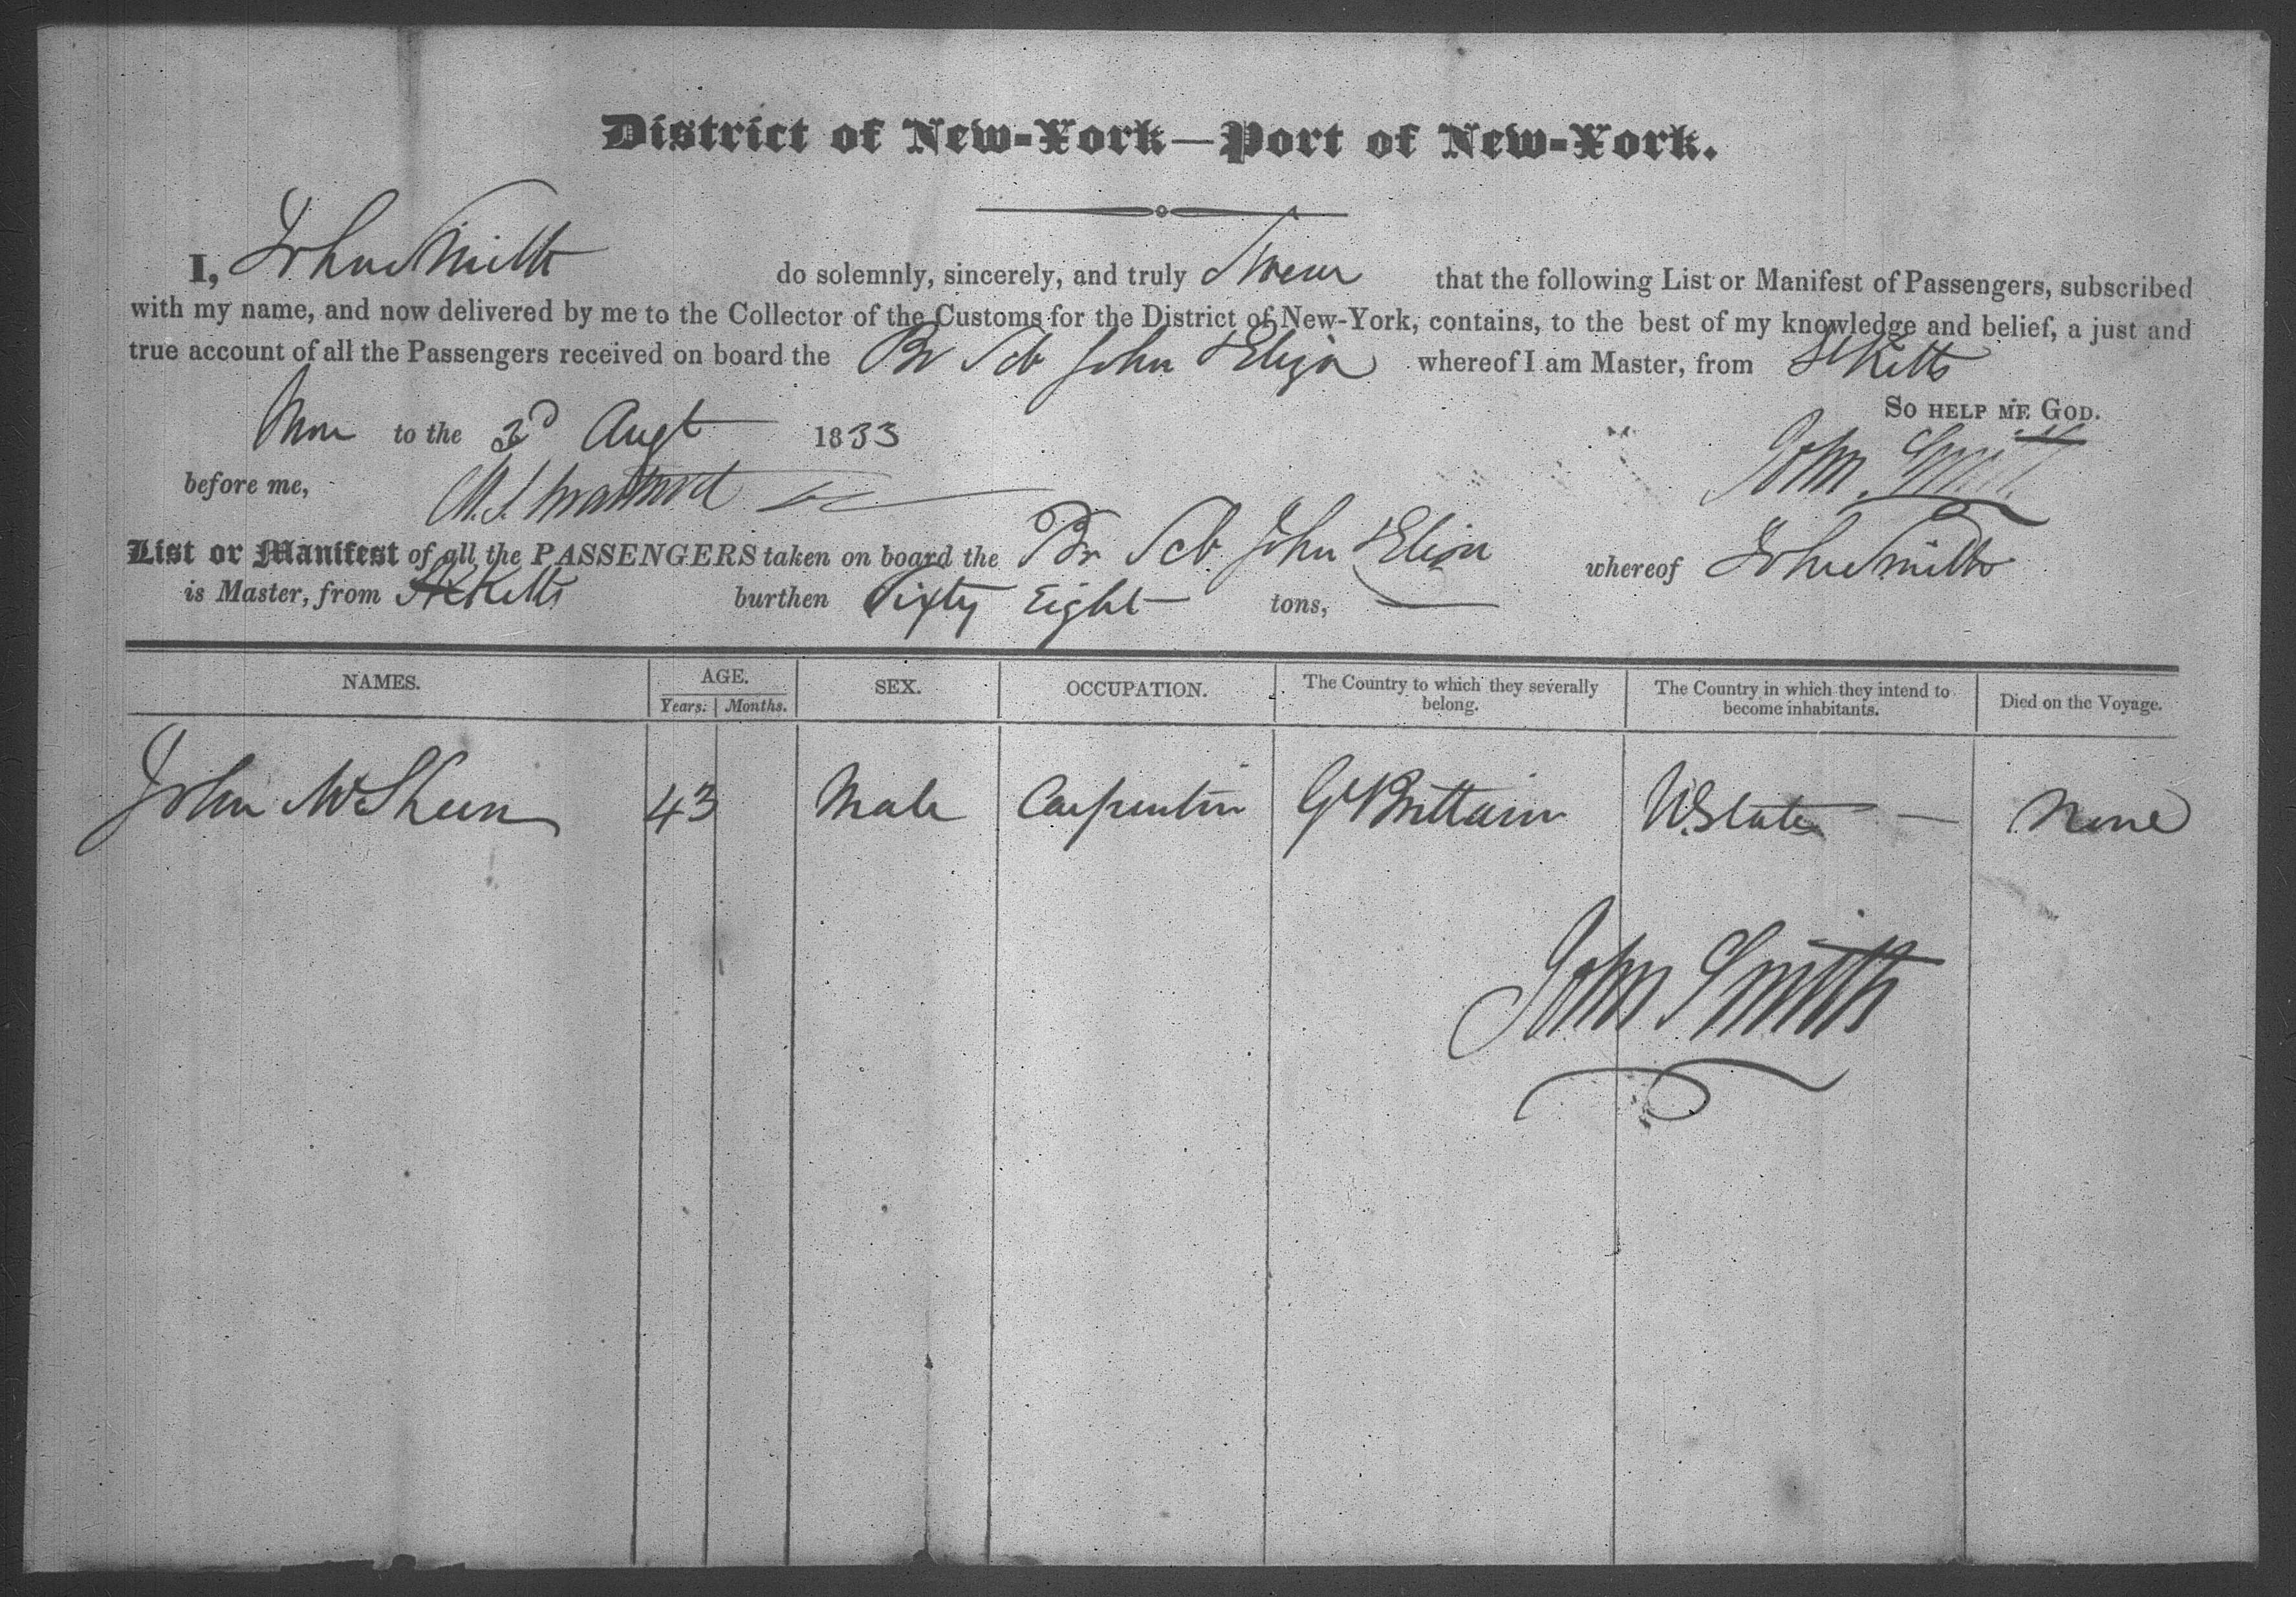 District of New-York—Port of New-York.
I, John Smith do solemnly, sincerely, and truly Swear that the following List or Manifest of Passengers, subscribed
with my name, and now delivered by me to the Collector of the Customs for the District of New-York, contains, to the best of my knowledge and belief, a just and
true account of all the Passengers received on board the Br Sch John & Eliza whereof I am Master, from St Kitts
So help me God.
Sworn to the 3d Augt 1833
John Smith
before me,
List or Manifest of all the PASSENGERS taken on board the Br Sch John & Eliza whereof John Smith
is Master, from St Kitts burthen Sixty Eight tons,
NAMES. AGE. SEX. OCCUPATION. The Country to which they severally belong. The Country in which they intend to become inhabitants. Died on the Voyage.
Years. Months.
John McSheen 43 Male Carpenter Gt Brittain U States — None
John Smith